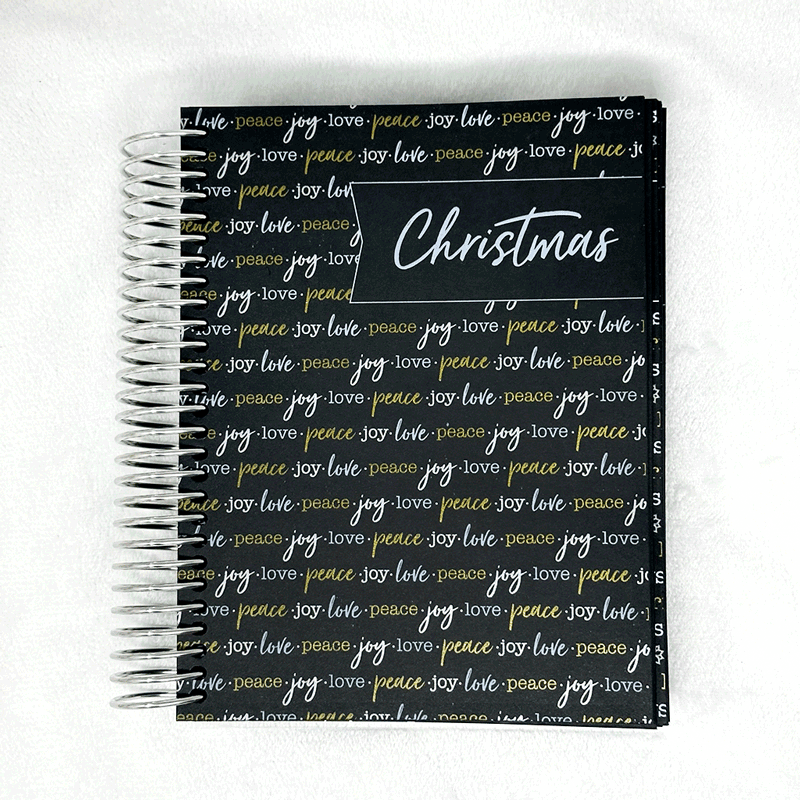 y·love·peace·joy·love·peace·joy·love·peace·joy·love·
peace·joy·love·peace·joy·love·peace·joy·love·peace·jo
love·peace·joy·love
peace·joy·love·peace
Christmas
love·peace·joy·love
peace·joy·love·peace
love·peace·joy·love·peace·joy·love·peace·joy·love·
peace·joy·love·peace·joy·love·peace·joy·love·peace·jo
y·love·peace·joy·love·peace·joy·love·peace·joy·love·
peace·joy·love·peace·joy·love·peace·joy·love·peace·jo
love·peace·joy·love·peace·joy·love·peace·joy·love·
peace·joy·love·peace·joy·love·peace·joy·love·peace·jo
love·peace·joy·love·peace·joy·love·peace·joy·love·
peace·joy·love·peace·joy·love·peace·joy·love·peace·jo
love·peace·joy·love·peace·joy·love·peace·joy·love·
peace·joy·love·peace·joy·love·peace·joy·love·peace·jo
y·love·peace·joy·love·peace·joy·love·peace·joy·love·